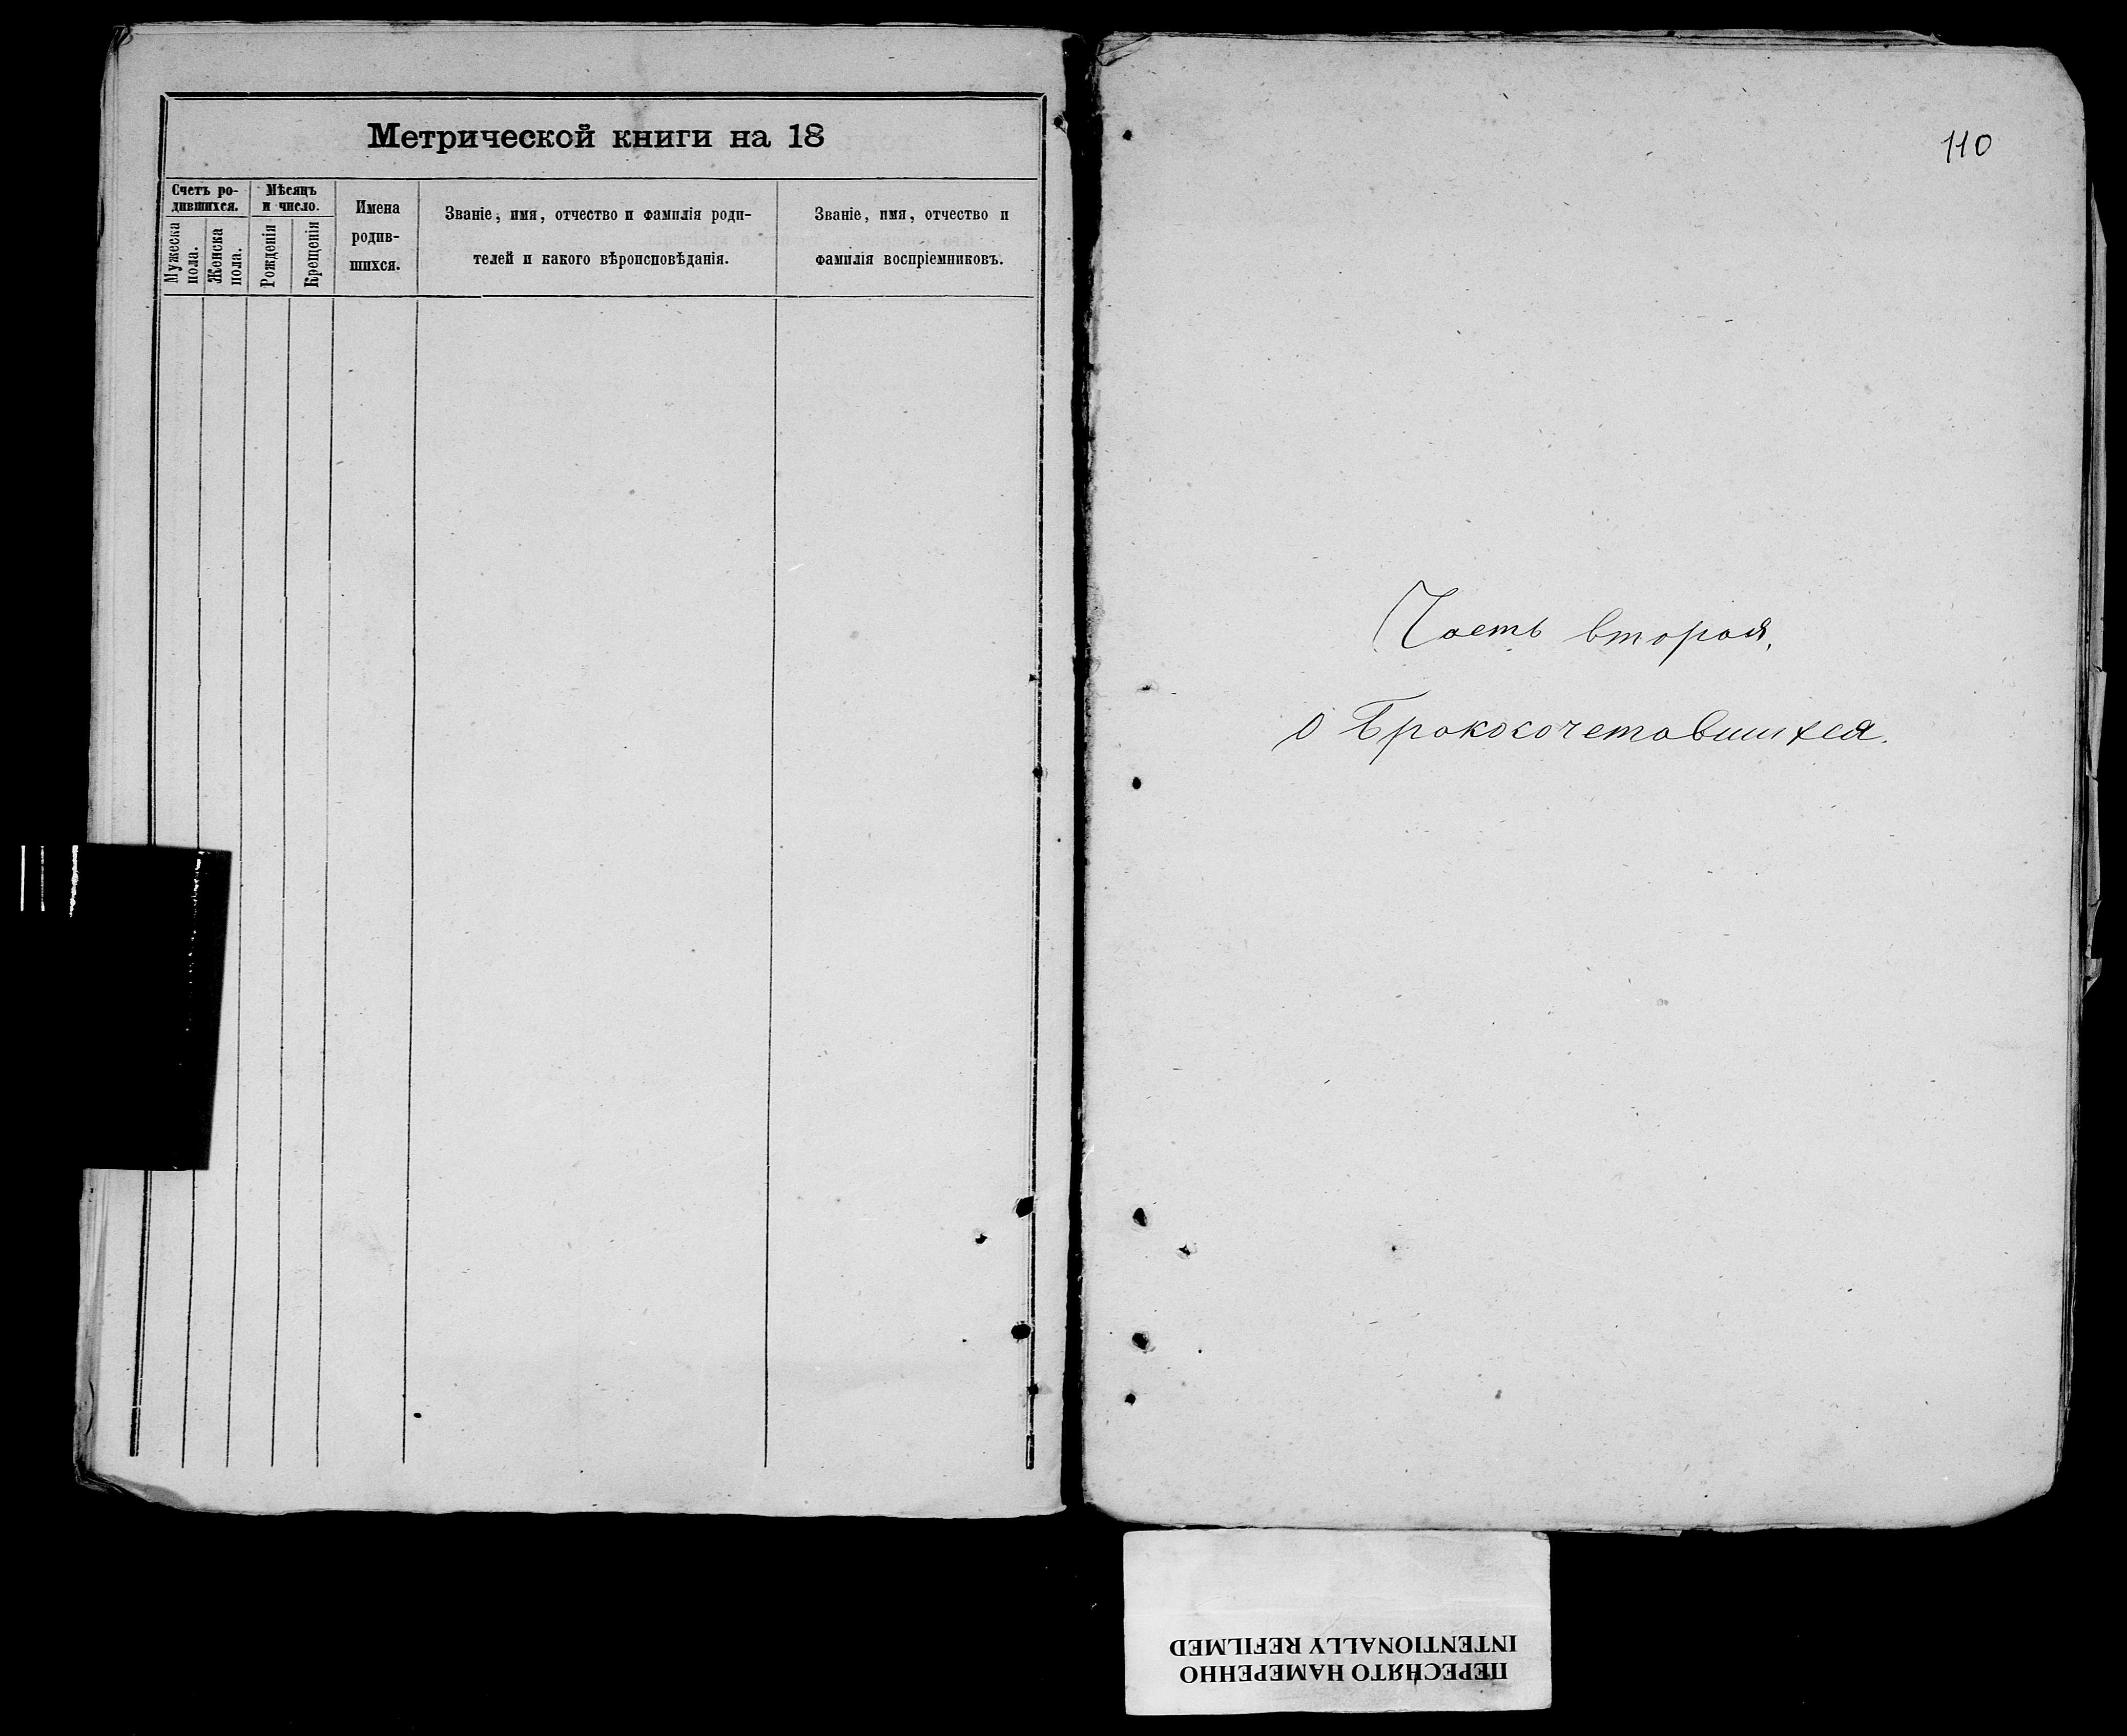 Метрической книги на 18
Счетъ ро-
дившихся.
Мѣсяцъ
и число.
Мужеска
пола.
Женска
пола.
Рожденія
Крещенія
Имена
родив-
шихся.
Званіе, имя, отчество и фамилія роди-
телей и какого вѣроисповѣданія.
Званіе, имя, отчество и
фамилія воспріемниковъ.
110
Часть вторая,
о Бракосочетавшихся.
ПЕРЕСНЯТО НАМЕРЕННО
INTENTIONALLY REFILMED